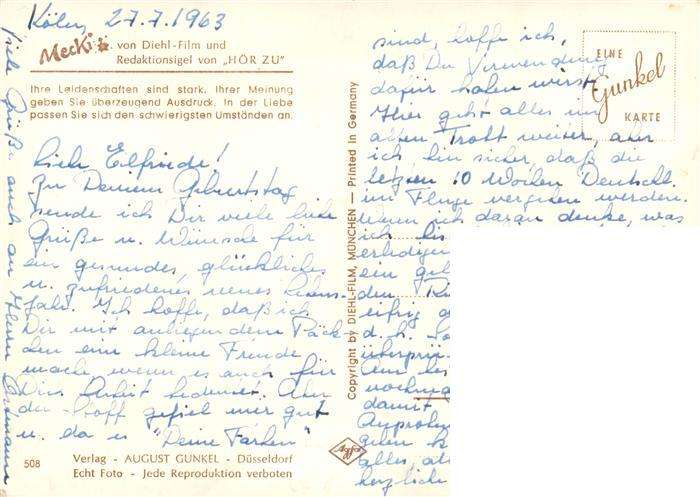 Köln, 27.7.1963
Mecki von Diehl-Film und
Redaktionsigel von „HÖR ZU"
Ihre Leidenschaften sind stark, Ihrer Meinung
geben Sie überzeugend Ausdruck. In der Liebe
passen Sie sich den schwierigsten Umständen an.
Liebe Elfriede!
Zu Deinem Geburtstag
sende ich Dir viele liebe
Grüße u. Wünsche für
ein gesundes, glückliches
u. zufriedenes neues Lebens-
jahr. Ich hoffe, daß ich
Dir mit anliegendem Päck-
chen eine kleine Freude
mache, wenn es auch für
Dich Arbeit bedeutet. Aber
der Stoff gefiel mir gut
u. da es "Deine Farben"
508
Verlag - AUGUST GUNKEL - Düsseldorf
Echt Foto - Jede Reproduktion verboten
viele Grüße auch an Herrn
Copyright by DIEHL-FILM, MÜNCHEN — Printed in Germany
Agfa
EINE
Gunkel
KARTE
sind, hoffe ich,
daß Du Verwendung
dafür haben wirst.
Hier geht alles im
alten Trott weiter, aber
ich bin sicher, daß die
letzten 10 Wochen Deutschl.
im Fluge vergehen werden.
Wenn ich daran denke, was
ich bis
erledigen
ein
den
eifrig
d. h.
überprü
nochma
damit
Anprobe
alles, al
herzliche